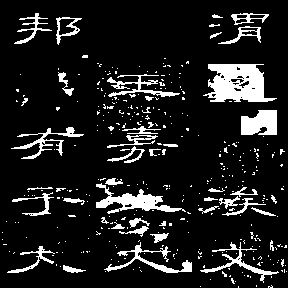 渭涘文
王嘉止大
邦有子大